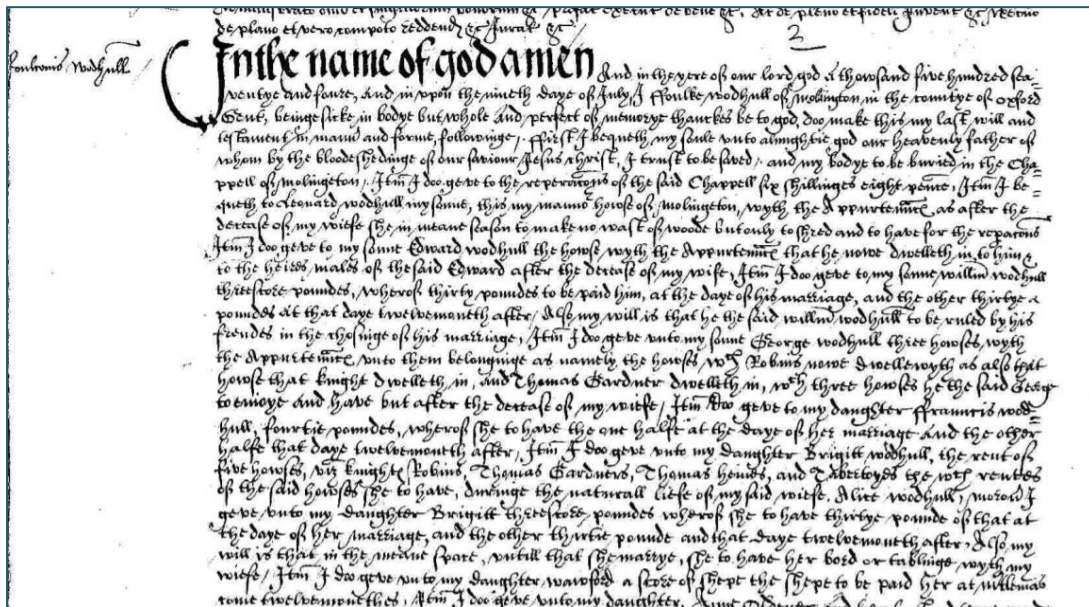 de plano et vero compoto reddend &c Jurat &c
2
Foulconis Wodhull
In the name of god amen And in the yere of our lord god A thowsand five hundred sea-
ventye and foure, And in vppon the nineth daye of July, I ffoulke wodhull of molington in the countye of oxford
Gent, beinge sicke in bodye but whole And perfect of memorye thanckes be to god, doo make this my last will and
testament in mann and forme, followinge, ffirst I bequeth my soule vnto almightie god our heavenly father of
whom by the bloodeshedinge of our saviour Jesus christ, I trust to be saved, and my bodye to be buried in the Cha=
ppell of molingeton, Itm I doo geve to the reperacons of the said Chappell six shillinges eight pence, Itm I be=
queth to Leonard wodhull my sonne, this my mannō howse of molington, wyth the Appurtennc as after the
decease of my wiefe she in meane season to make no wast of woode but only to shred and to have for the repacons
Itm I doo geve to my sonne Edward wodhull the howse wyth the Appurtennc that he nowe dwelleth in, to him &
to the heires males of the said Edward after the decease of my wife, Itm I doo geve to my sonne willm wodhull
threescore poundes, wherof thirty poundes to be paid him, at the daye of his marriage, and the other thirtye
poundes at that daye twelvemoneth after, Also my will is that he the said willm wodhull to be ruled by his
frendes in the chosinge of his marriage, Itm I doo geve vnto my sonne George wodhull three howses, wyth
the Appurtennc vnto them belonginge as namely the howses wch Robins nowe dwellewyth as also that
howse that knight dwelleth in, and Thomas Gardner dwelleth in, wch three howses he the said George
to enioye And have but after the decease of my wiefe, Itm doo geve to my daughter ffranncis wod=
hull, fourtie poundes, wherof she to have the one halfe at the daye of her marriage And the other
halfe that daye twelvemoneth after, Itm I doo geve vnto my daughter Brigitt wodhull, the rent of
five howses, viz knightes Robins, Thomas Gardners, Thomas and the wch rentes
of the said howses she to have, duringe the naturall liefe of my said wiefe, Alice wodhull, moreou I
geve vnto my daughter Brigitt threescore poundes wherof she to have thirtye pounde of that at
the daye of her marriage, and the other thirtie pounde and that daye twelvemoneth after, Also my
will is that in the meane space, vntill that she marrye, she to have her bord or tablinge wyth my
wiefe, Itm I doo geve vnto my daughter wawford a score of shepe the shepe to be paid her at
come twelvemonethes, Itm I doo geve vnto my daughter